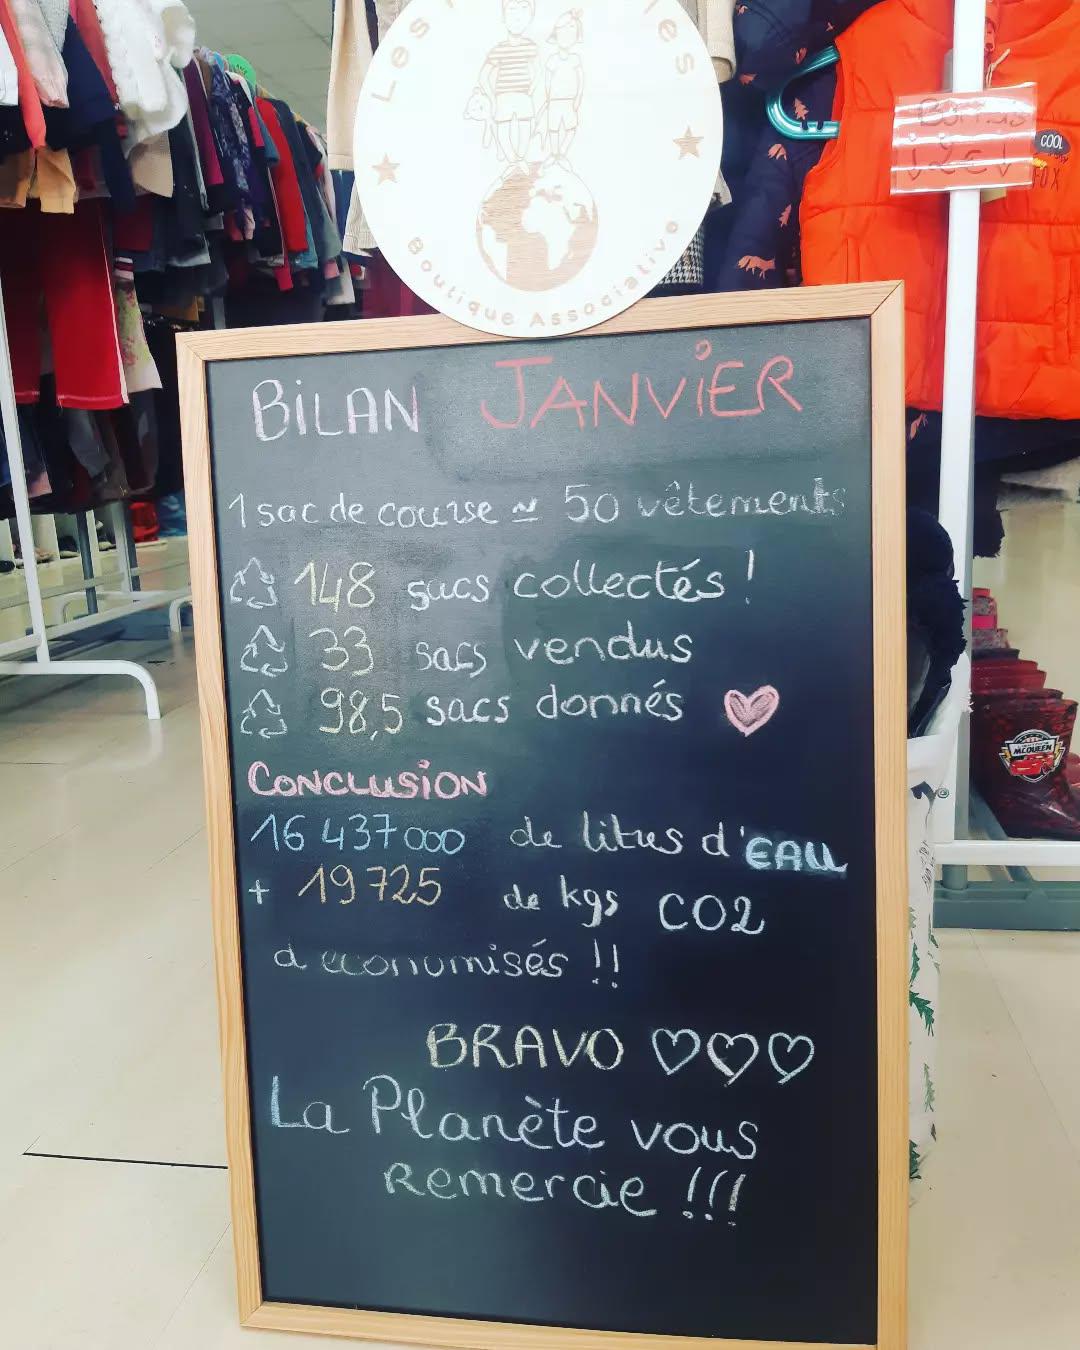 Les
les
Boutique Associative
COOL
FOX
BiLAN JANViER
1 sac de course ≃ 50 vêtements
148 sacs collectés !
33 sacs vendus
98,5 sacs donnés
CONCLUSiON
16 437 000 de litres d'EAU
+ 19 725 de kgs CO2
d economisés !!
BRAVO
La Planète vous
Remercie !!!
MCQUEEN